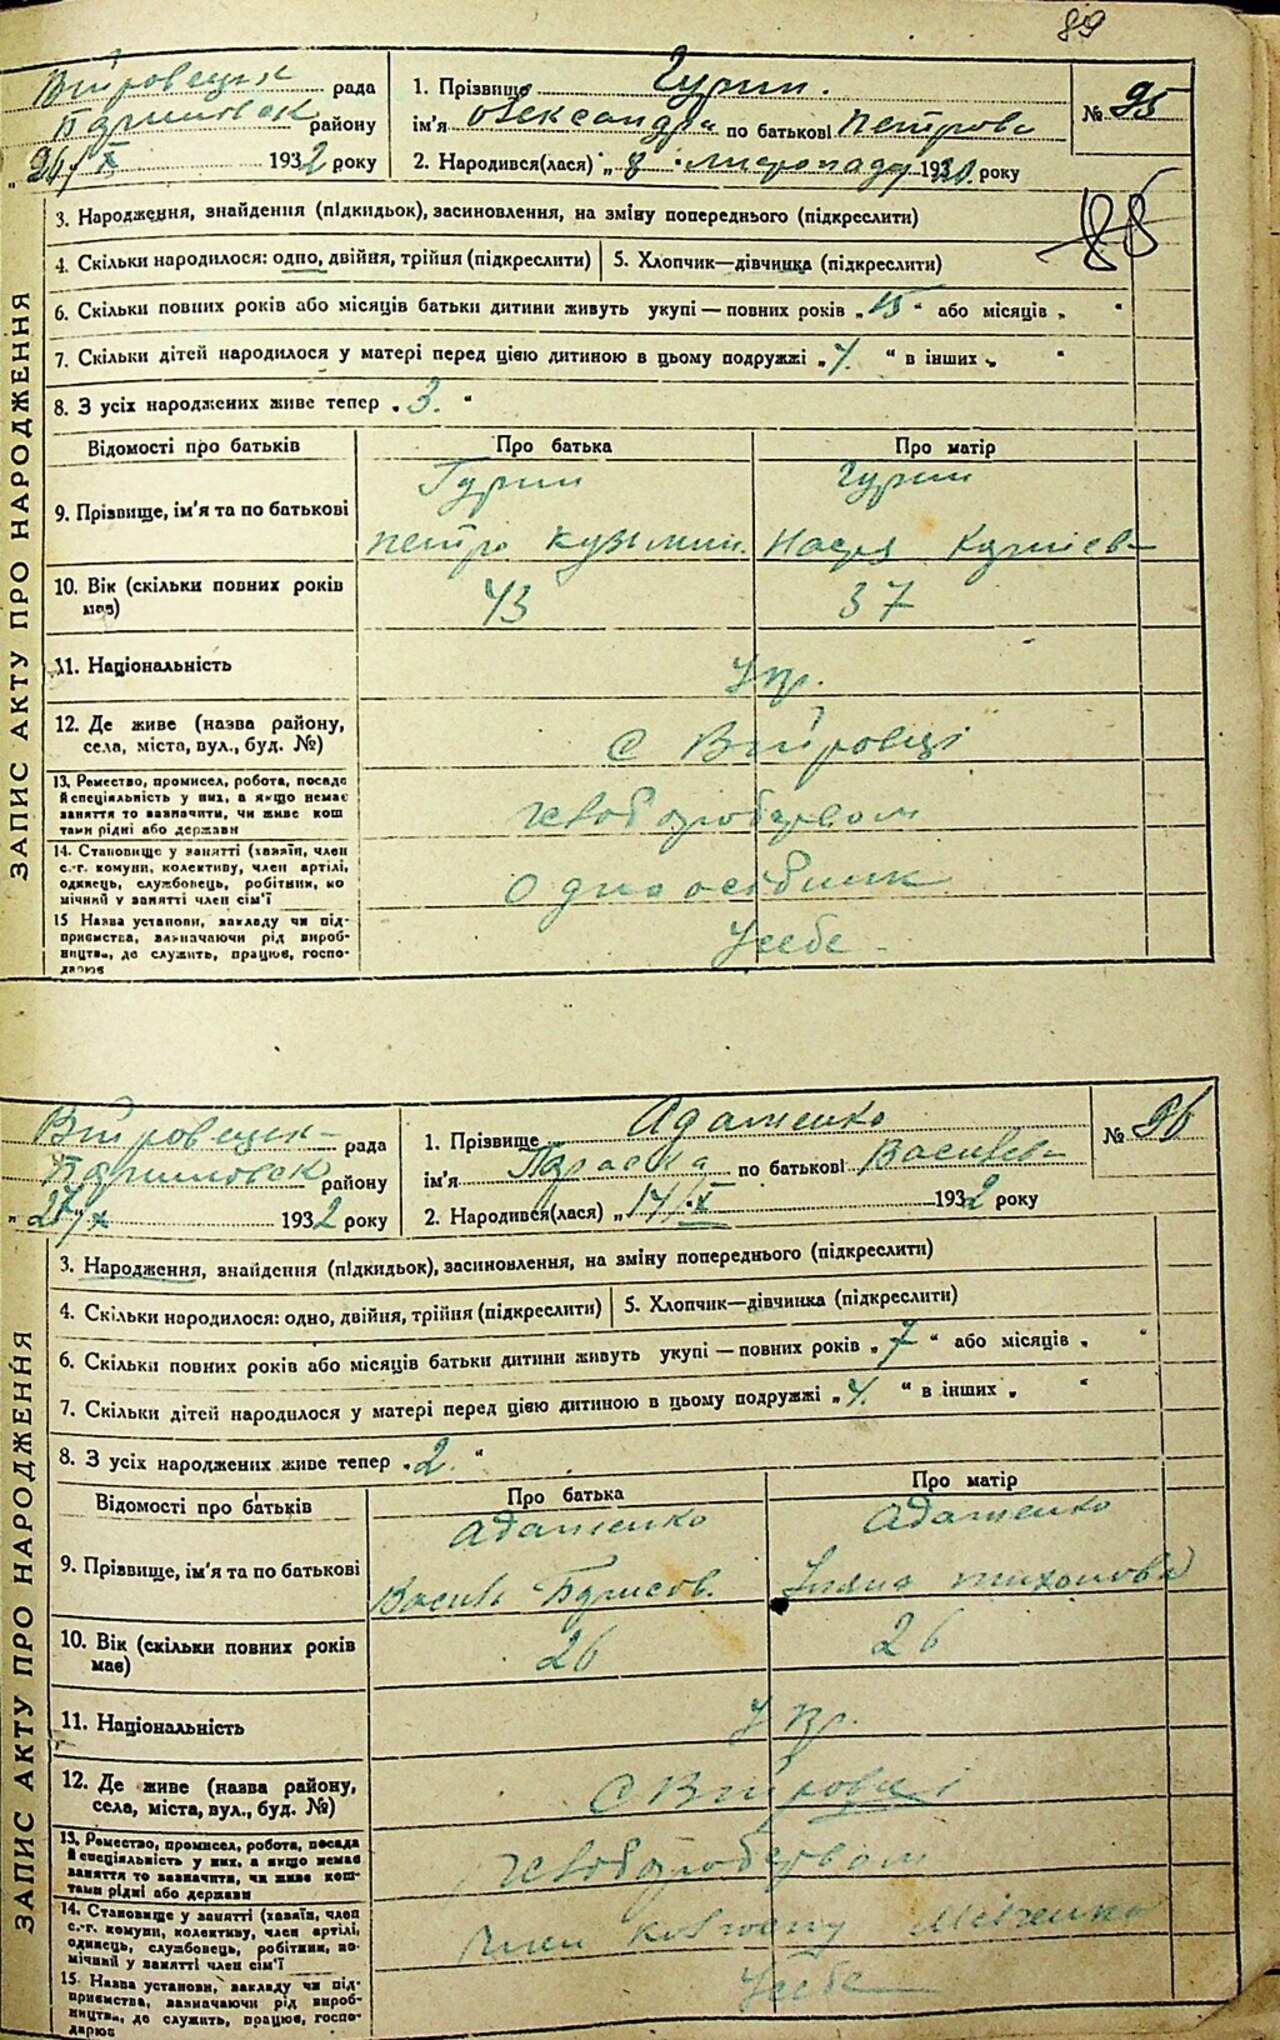 89
Війтовецька рада
району
26/X 1932 року
1. Прізвище Гурин.
ім'я Олександра по батькові Петрова
2. Народився(лася) „ 8 " 193 року
№ 95
88
ЗАПИС АКТУ ПРО НАРОДЖЕННЯ
3. Народження, знайдення (підкидьок), засиновлення, на зміну попереднього (підкреслити)
4. Скільки народилося: одно, двійня, трійня (підкреслити) 5. Хлопчик—дівчинка (підкреслити)
6. Скільки повних років або місяців батьки дитини живуть укупі — повних років „ 15 " або місяців „ "
7. Скільки дітей народилося у матері перед цією дитиною в цьому подружжі „ 4. " в інших „ "
8. З усіх народжених живе тепер „ 3. "
Відомості про батьків Про батька Про матір
Гурин Гурин
9. Прізвище, ім'я та по батькові
Петро Кузьмин.
10. Вік (скільки повних років має) 43 37
11. Національність Укр.
12. Де живе (назва району,
села, міста, вул., буд. №) С
13. Ремество, промисел, робота, посада
й спеціяльність у них, а якщо немає
заняття то зазначити, чи живе кош
тами рідні або держави
хлібороб
14. Становище у занятті (хазяїн, член
с.-г. комуни, колективу, член артілі,
одинець, службовець, робітник, по
мічний у занятті член сім'ї
Одноосібник
15 Назва установи, закладу чи під-
приємства, зазначаючи рід вироб-
ництва, де служить, працює, госпо-
дарює
У себе
рада
району
27/X 1932 року
1. Прізвище Адаменко
ім'я Параска по батькові Василів
2. Народився(лася) „ 14/X 1932 року
№ 96
ЗАПИС АКТУ ПРО НАРОДЖЕННЯ
3. Народження, знайдення (підкидьок), засиновлення, на зміну попереднього (підкреслити)
4. Скільки народилося: одно, двійня, трійня (підкреслити) 5. Хлопчик—дівчинка (підкреслити)
6. Скільки повних років або місяців батьки дитини живуть укупі — повних років „ 7 " або місяців „ "
7. Скільки дітей народилося у матері перед цією дитиною в цьому подружжі „ 4. " в інших „ "
8. З усіх народжених живе тепер „ 2. "
Відомості про батьків Про батька Про матір
Адаменко Адаменко
9. Прізвище, ім'я та по батькові
Василь Борисов. Уляна Тихонова
10. Вік (скільки повних років має) 26 26
11. Національність Укр.
12. Де живе (назва району,
села, міста, вул., буд. №) С
13. Ремество, промисел, робота, посада
й спеціяльність у них, а якщо немає
заняття то зазначити, чи живе кош-
тами рідні або держави
хлібороб
14. Становище у занятті (хазяїн, член
с.-г. комуни, колективу, член артілі,
одинець, службовець, робітник, по-
мічний у занятті член сім'ї
Член
15. Назва установи, закладу чи під-
приємства, зазначаючи рід вироб-
ництва, де служить, працює, госпо-
дарює
У себе